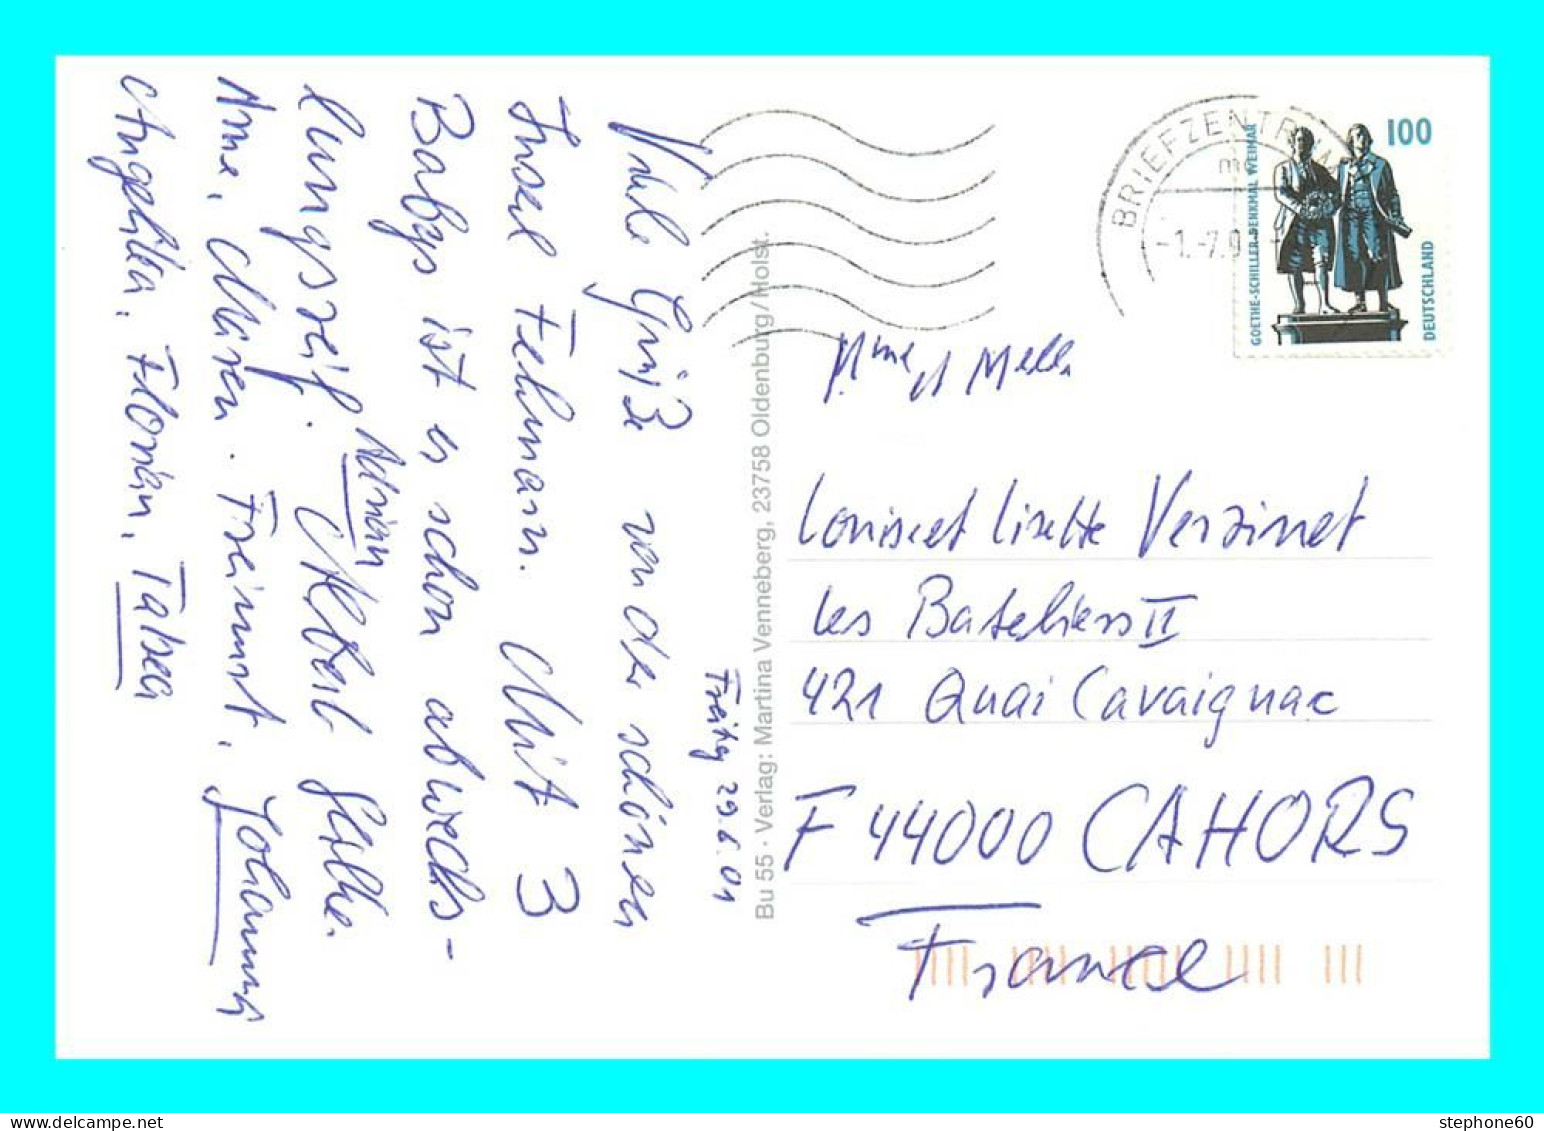 Freitag 29.6.01
Viele Grüße von der schönen
Insel Fehmarn. Mit 3
Babys ist es schon abwechs-
lungsreif. Adrian
Anne, Freimut, Johannes
Angelika, Florian, Tabea
Bu 55 · Verlag: Martina Venneberg, 23758 Oldenburg/Holst.
BRIEFZENTRUM
-1.-7.0
100
GOETHE-SCHILLER-DENKMAL WEIMAR
DEUTSCHLAND
Mme et
Louise et Lisette Verzinet
Les Bateliers II
421 Quai Cavaignac
F 44000 CAHORS
France
stephone60